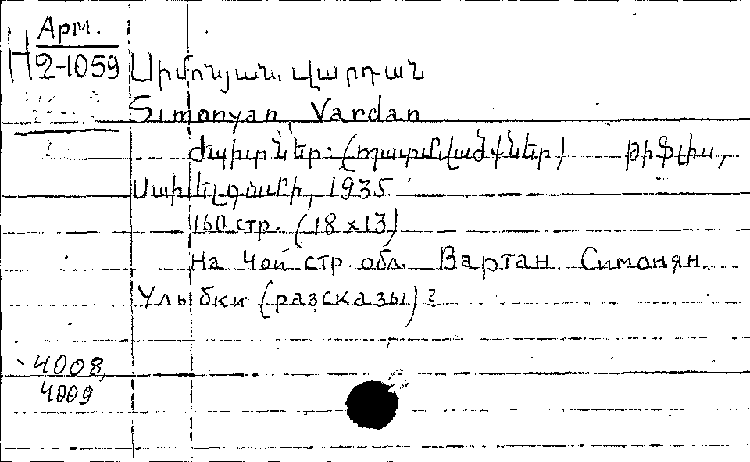 Арм.
Н 2-1059
Սիմոնյան Վարդան
Simonyan Vardan
Ժպիտներ: (պատմվածքներ) Թիֆլիս,
1935
160 стр. (18x13)
На 4ой стр. обл. Вартан Симонян.
Улыбки (разсказы)
4008,
4009